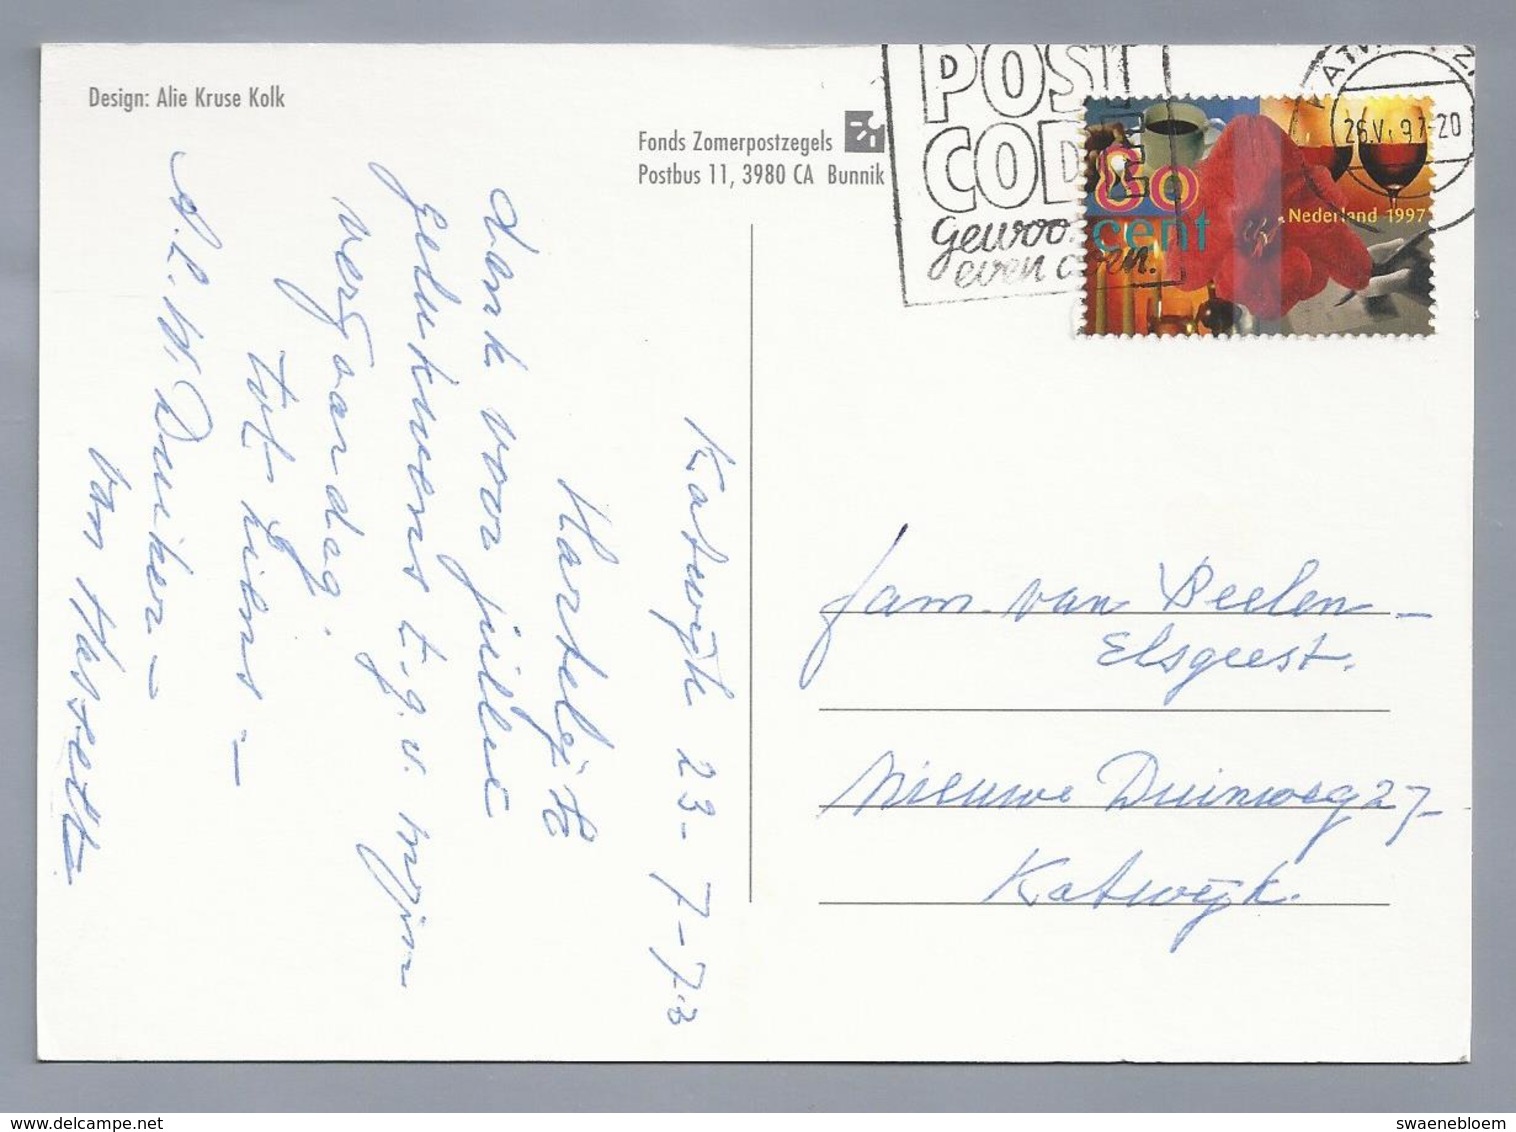 Design: Alie Kruse Kolk
Fonds Zomerpostzegels
Postbus 11, 3980 CA Bunnik
POST
CODE
gewoon
even doen.
26.V.97-20
80
cent
Nederland 1997
Katwijk 23-7-
Hartelijk
dank voor jullie
gelukwens t.g.v. mijn
verjaardag.
tot ziens -
A.L.W. Duiker -
van Hasselt
Fam. van Beelen -
Elsgeest.
Nieuwe Duinweg 27-
Katwijk.
swaenebloem
www.delcampe.net